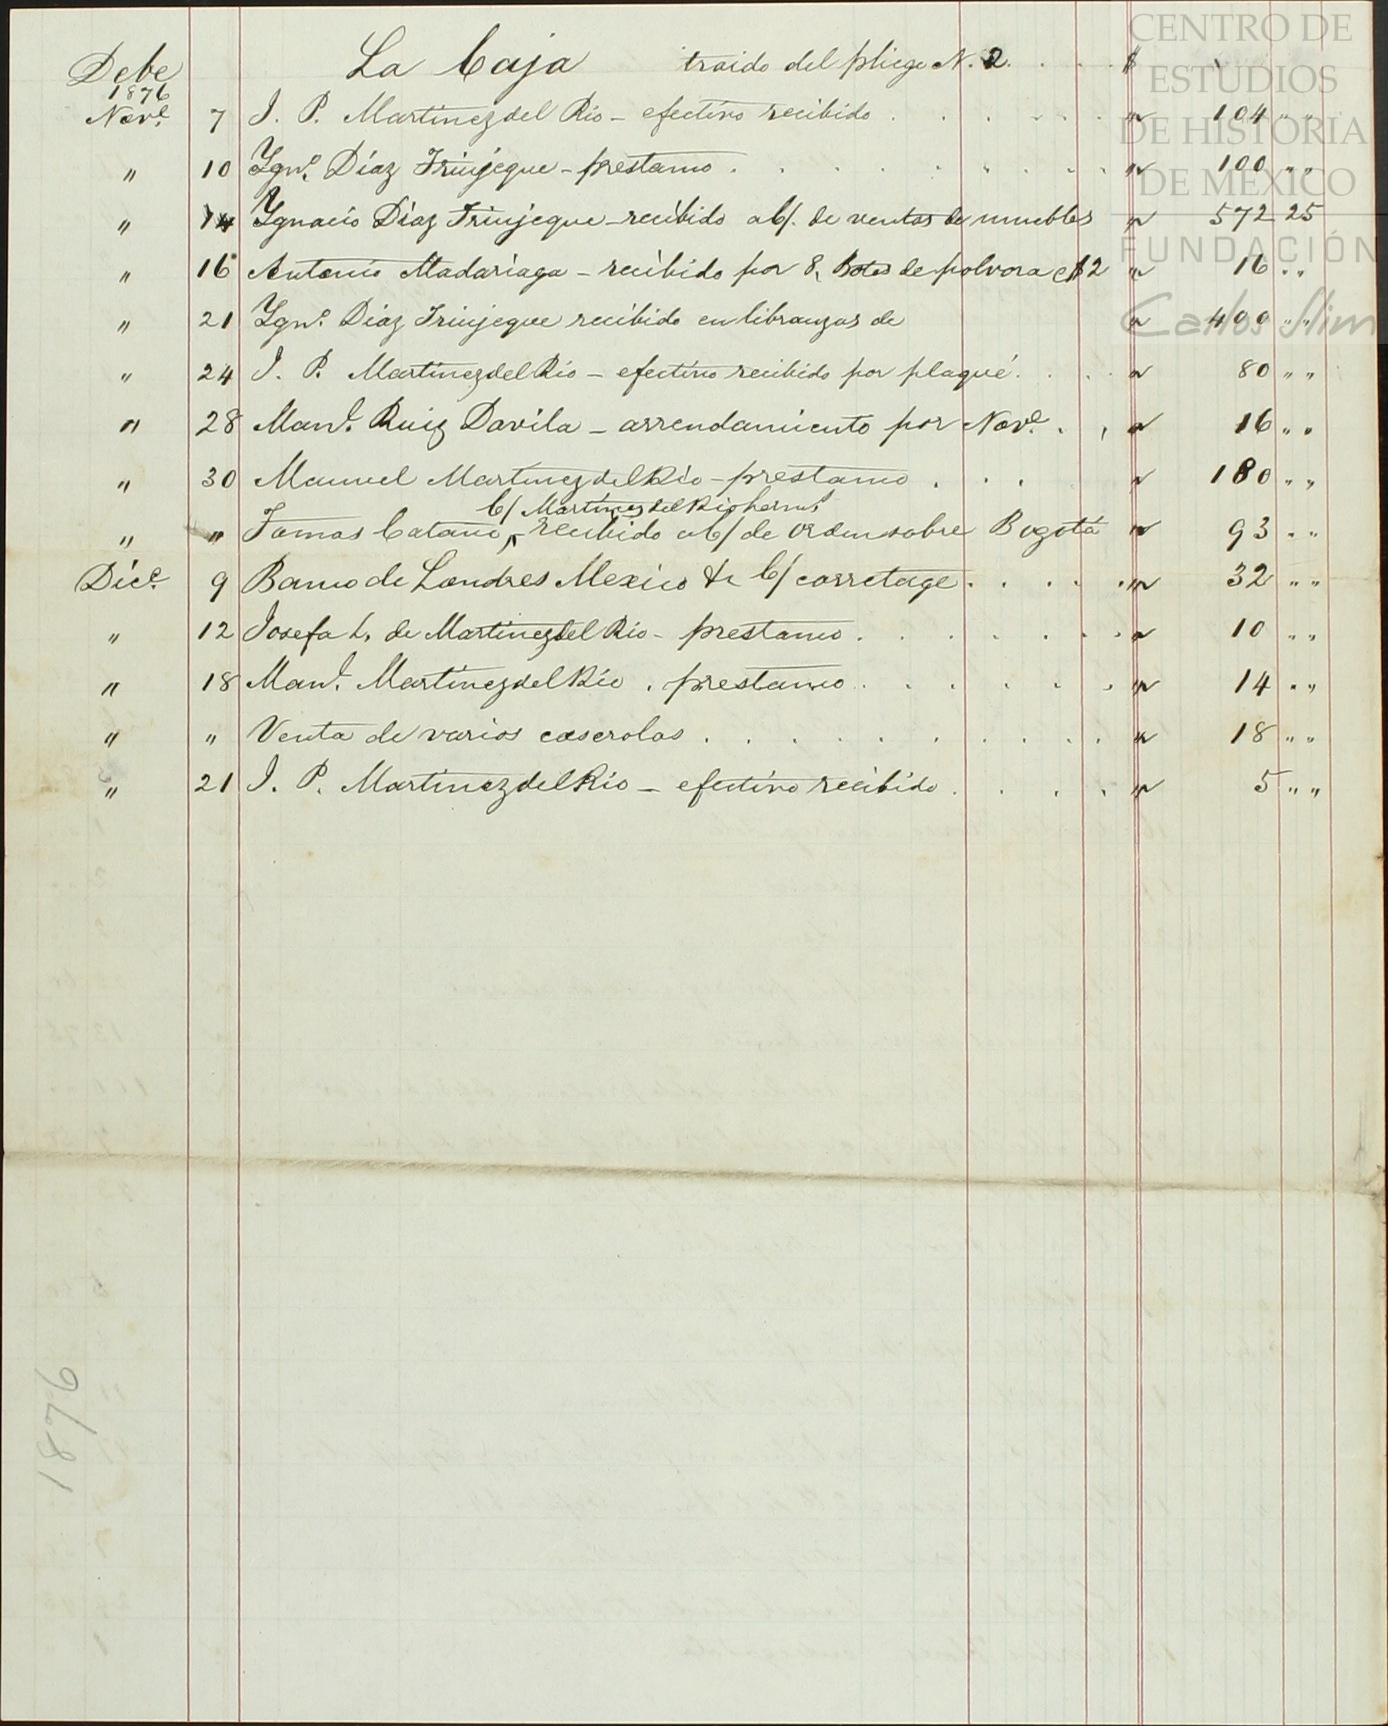 Debe La Caja traido del pliego N. 2. . . . $
1876
Nov.e 7 J. P. Martinez del Rio - efectivo recibido . . . . . . " 104 " "
" 10 Ygn.o Diaz Triujeque - prestamo . . . . . . . . " 100 " "
" 14 Ygnacio Diaz Triujeque - recibido a C/. de ventas de muebles " 572 25
" 16 Antonio Madariaga - recibido por 8, Botes de polvora @ $2 " 16 " "
" 21 Ygn.o Diaz Triujeque recibido en libranzas de " 400 " "
" 24 J. P. Martinez del Rio - efectivo recibido por plaqué . . . " 80 " "
" 28 Man.l Ruiz Davila - arrendamiento por Nov.e . . " 16 " "
" 30 Manuel Martinez del Rio - prestamo . . . " 180 " "
C/ Martinez del Rio herm.s
" " Tomas Catano, recibido a C/ de orden sobre Bogotá " 93 " "
Dic.e 9 Banco de Londres Mexico &c C/ corretage . . . . . " 32 " "
" 12 Josefa L. de Martinez del Rio - prestamo . . . . . . . " 10 " "
" 18 Man.l Martinez del Rio . prestamo . . . . . . . " 14 " "
" " Venta de varios caserolas . . . . . . . . . . " 18 " "
" 21 J. P. Martinez del Rio - efectivo recibido . . . . " 5 " "
1876
CENTRO DE
ESTUDIOS
DE HISTORIA
DE MÉXICO
FUNDACIÓN
Carlos Slim